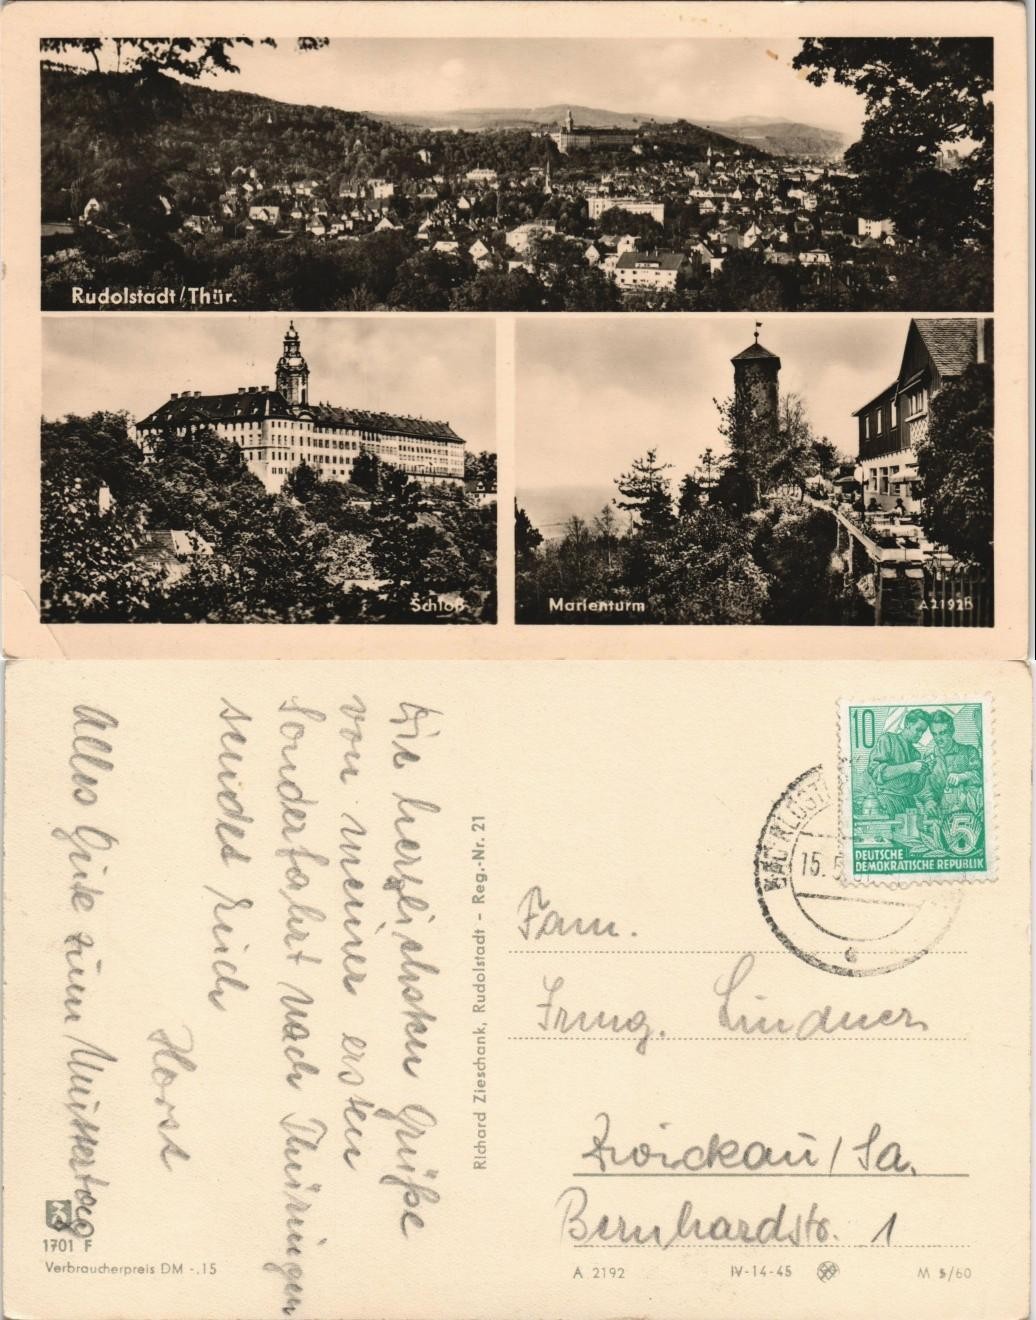 Rudolstadt/Thür.
Schloß
Marienturm
A2192B
Die herzlichsten Grüße
von meiner ersten
Sonderfahrt nach Thüringen
sendet Euch
Horst
Alles Gute zum Muttertag
Richard Zieschank, Rudolstadt - Reg.-Nr. 21
10
5
DEUTSCHE
DEMOKRATISCHE REPUBLIK
15.5
Fam.
Irmg. Lindner
Zwickau/Sa.
Bernhardstr. 1
1701 F
Verbraucherpreis DM -.15
A 2192
IV-14-45
M 5/60